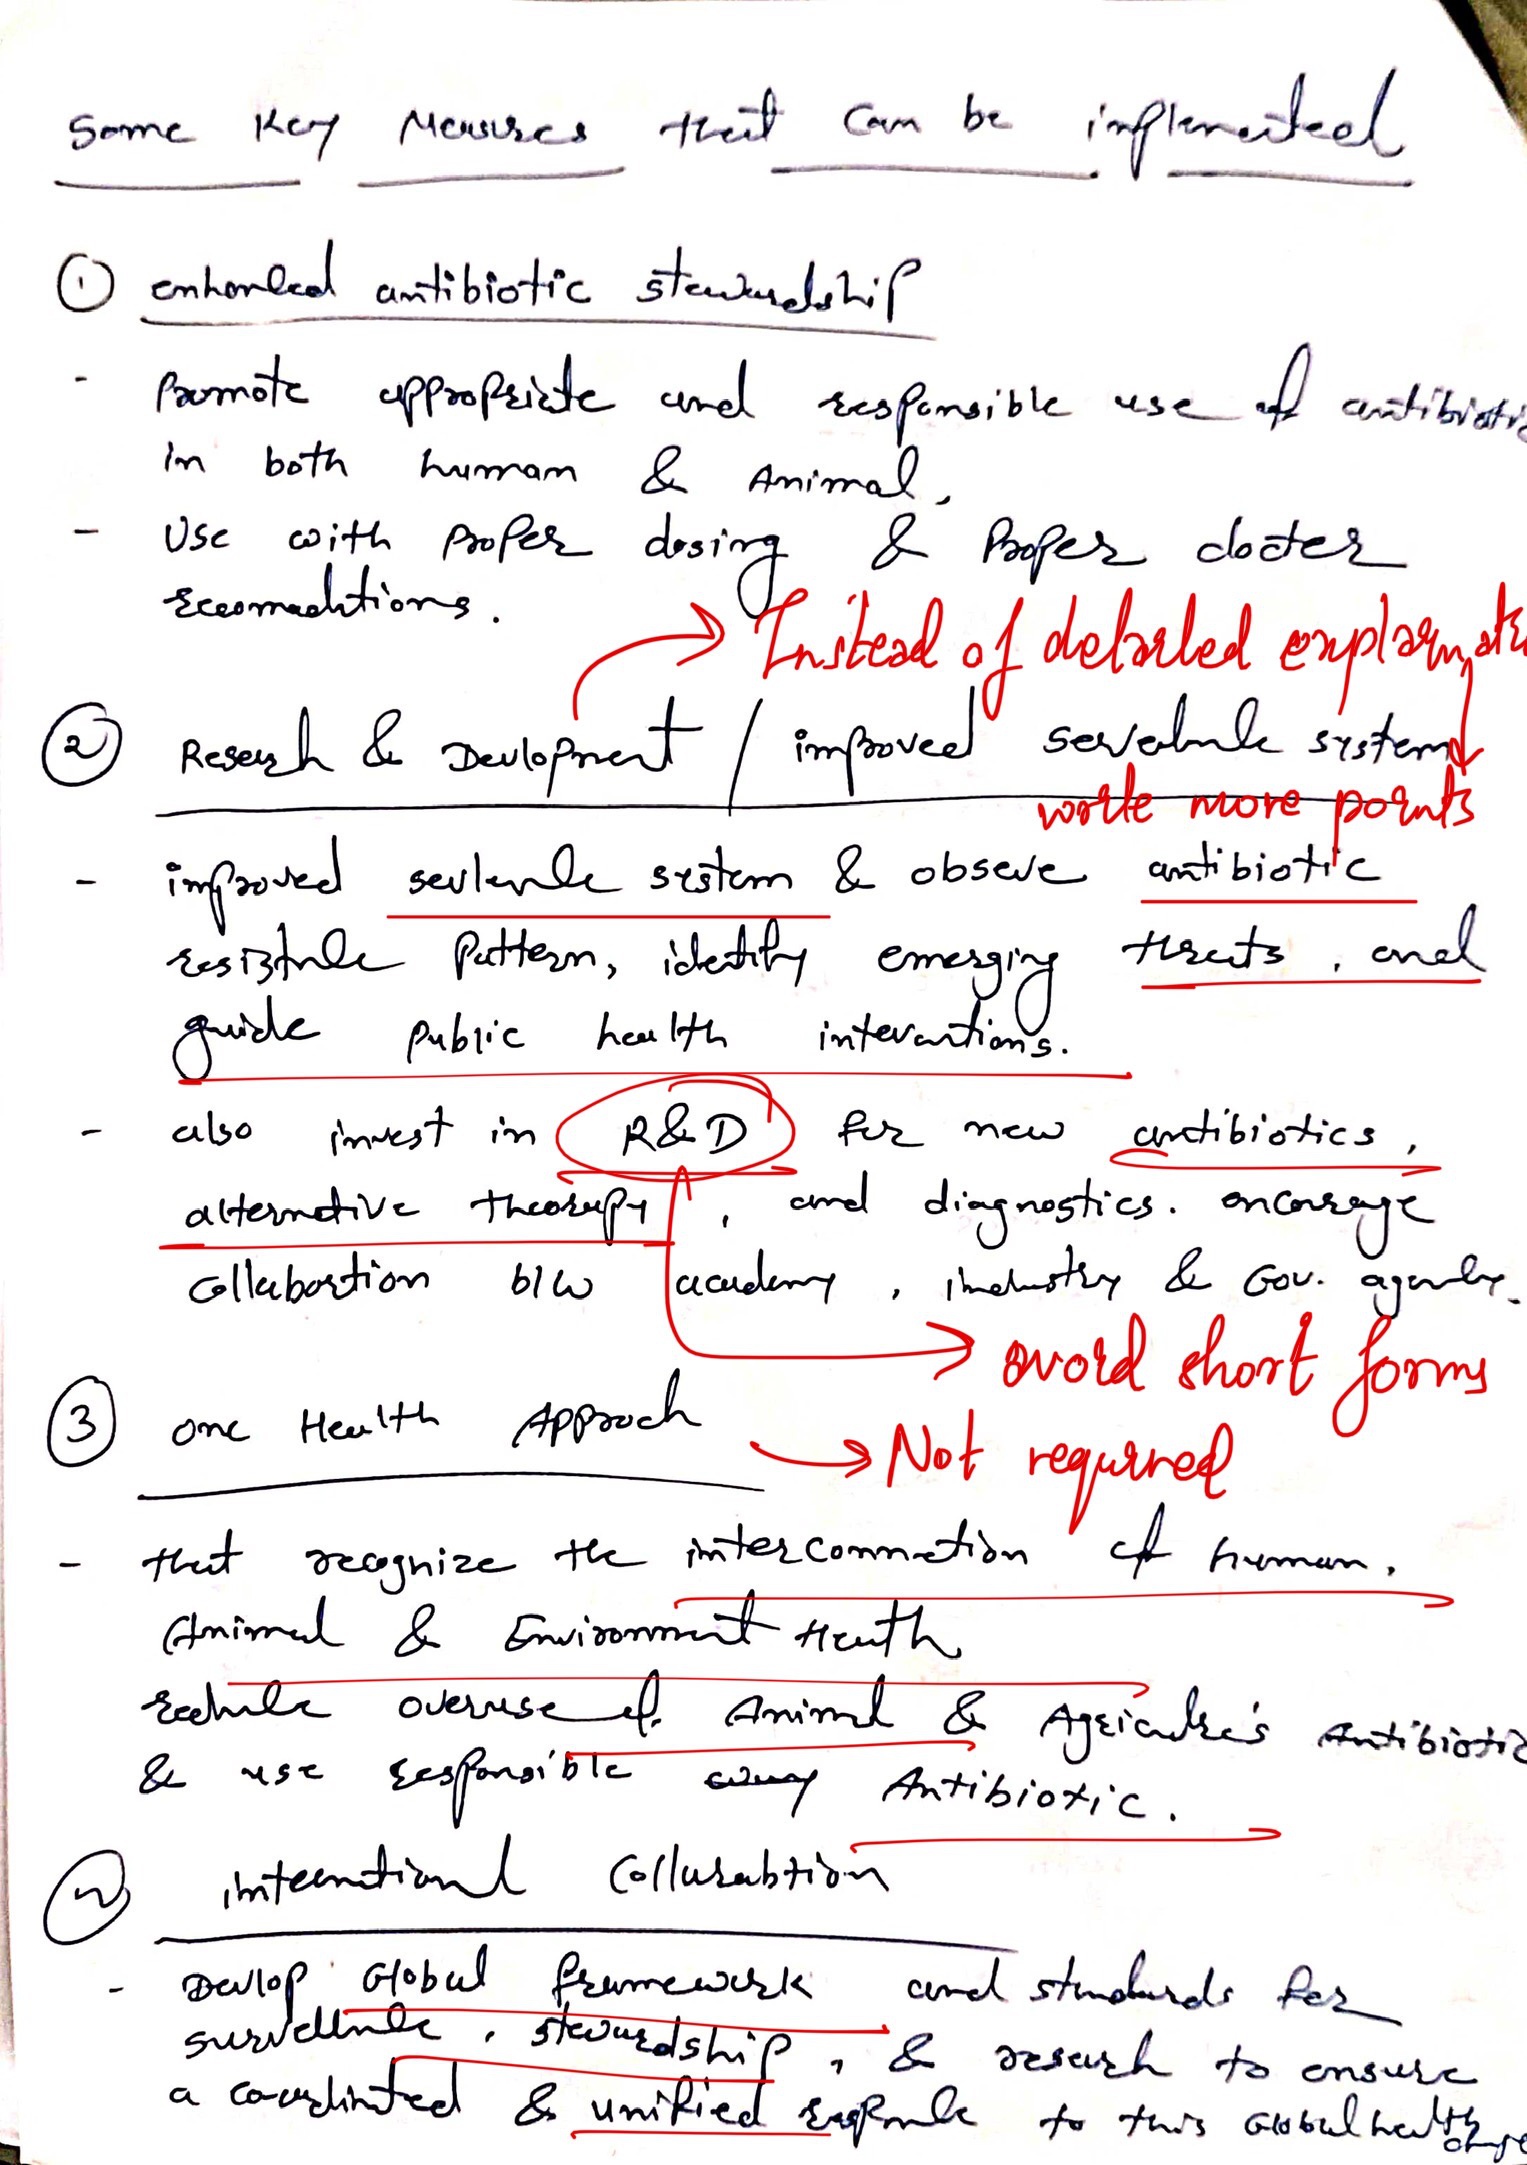 Some Key Measures that can be implemented
① enhanced antibiotic stewardship
- Promote appropriate and responsible use of antibiotic
in both human & Animal.
- Use with proper dosing & Proper docter
Instead of detailed explanation
② Research & Devlopment / improved system
write more points
- improved system & observe antibiotic
resistance Pattern, identify emerging threats, and
guide public health interventions.
- also invest in R&D for new antibiotics,
alternative therapy, and diagnostics. encourage
collabortion b/w academy, industry & Gov. agency.
avoid short forms
③ One Health Approach
Not required
- that recognize the interconnection of human,
Animal & Environment Health
reduce overuse of Animal & Antibiotic
& use responsible Antibiotic.
international
- Devlop Global framework and standards for
stewardship, & research to ensure
a coordinated & unified response to this Global health